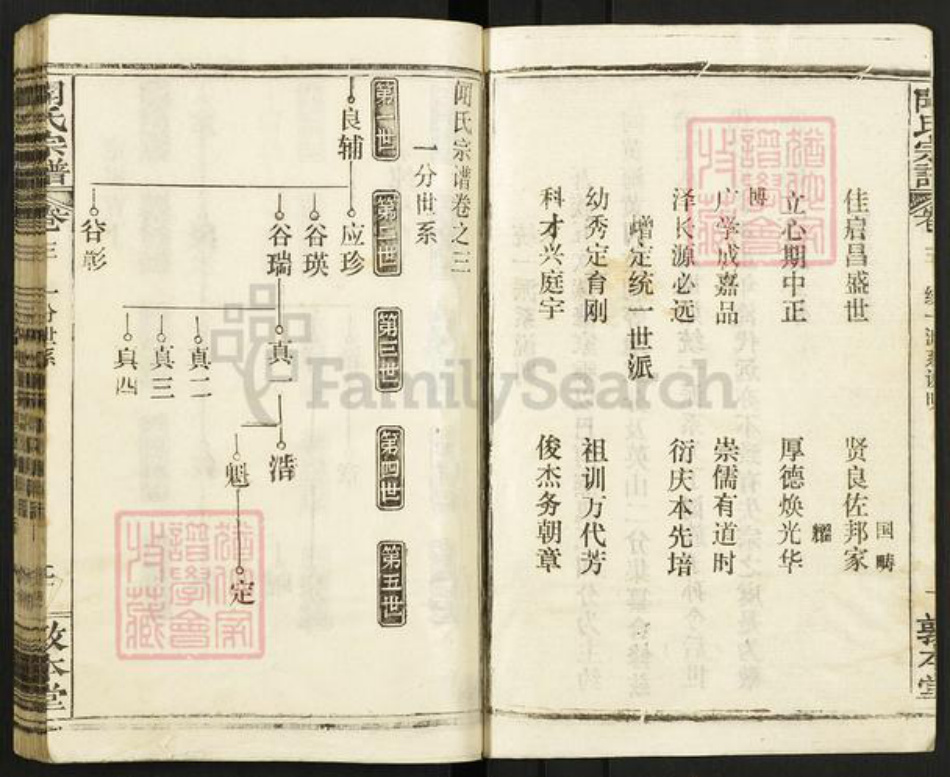 佳启昌盛世
贤良佐邦家
国畴
立心期中正
厚德焕光华
耀
博
广学成嘉品
崇儒有道时
泽长源必远
衍庆本先培
增定统一世派
幼秀定育刚
祖训万代芳
科才兴庭宇
俊杰务朝章
闻氏宗谱
卷三
敦本堂
闻氏宗谱卷之三
一分世系
第一世
第二世
第三世
第四世
第五世
良辅
应珍
谷瑛
谷瑞
谷彰
真一
真二
真三
真四
浩
魁
定
闻氏宗谱
卷三
一分世系
敦本堂
FamilySearch